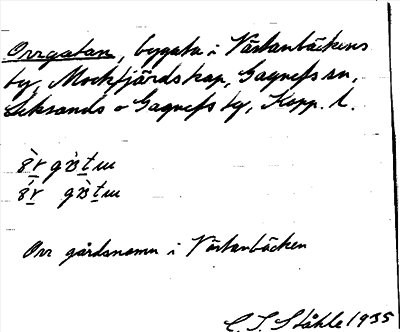 Orrgatan, bygata i Västanbäckens
by, Mockfjärds kap, Gagnefs sn,
Leksands o Gagnefs tg, Kopp. l.
Orr gårdsnamn i Västanbäcken
C. I. Ståhle 1935